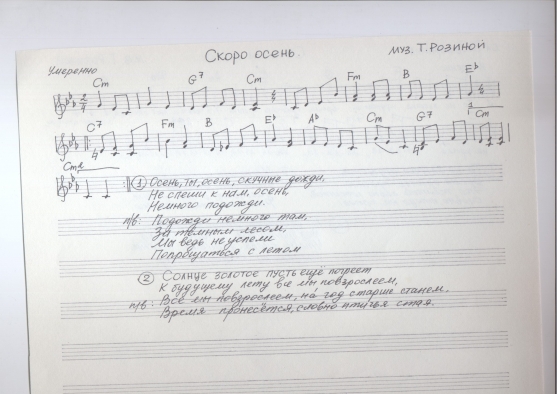 Скоро осень
муз. Т. Розиной
Умеренно
Cm G7 Cm Fm B Eb
C7 Fm B Eb Ab Cm G7 1 Cm
Cm
① Осень, ты, осень, скучные дожди,
Не спеши к нам, осень,
Немного подожди.
пв: Подожди немного там,
За тёмным лесом,
Мы ведь не успели
Попрощаться с летом
② Солнце золотое пусть ещё погреет
К будущему лету все мы повзрослеем,
пв: Все мы повзрослеем, на год старше станем.
Время пронесётся, словно птичья стая.